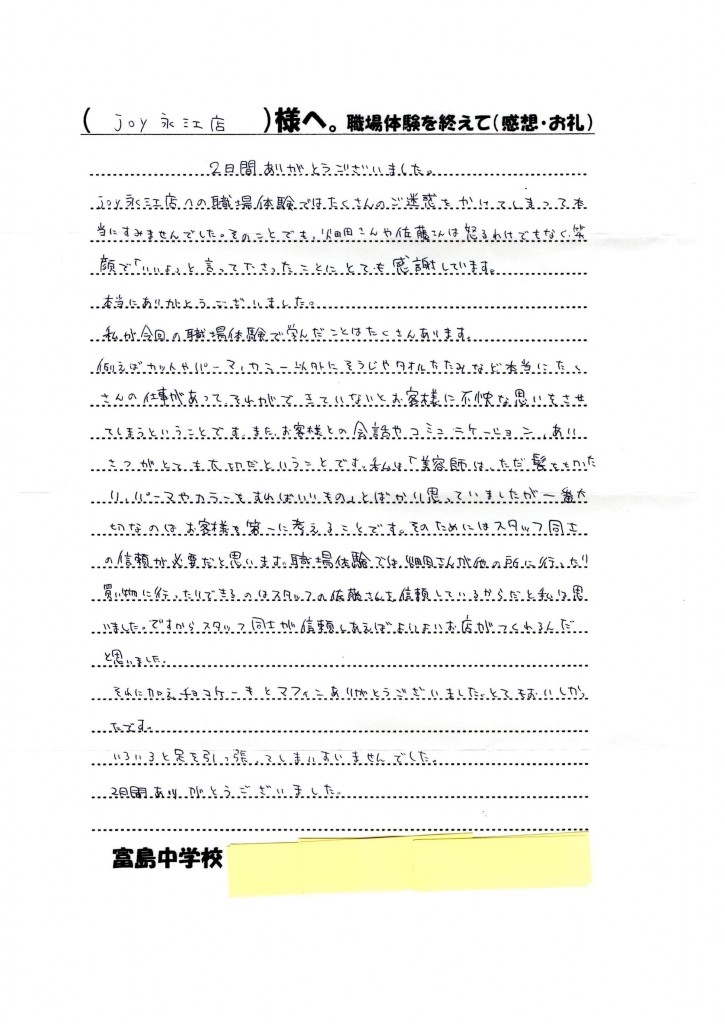 ( joy 永江店 )様へ。職場体験を終えて(感想・お礼)
2日間ありがとうございました。
joy永江店への職場体験ではたくさんのご迷惑をかけてしまって本
当にすみませんでした。そのことでも、畑田さんや佐藤さんは怒るわけでもなく、笑
顔で「いいよ」と言って下さったことにとても感謝しています。
本当にありがとうございました。
私が今回の職場体験で学んだことはたくさんあります。
例えばカットやパーマ、カラー以外にそうじやタオルたたみなど本当にたく
さんの仕事があって、それができていないとお客様に不快な思いをさせ
てしまうということです。また、お客様との会話やコミュニケーション、あい
さつがとても大切だということです。私は「美容師は、ただ髪をきったた
り、パーマやカラーをすればいいもの」とばかり思っていましたが一番大
切なのはお客様を第一に考えることです。そのためにはスタッフ同士
の信頼が必要だと思います。職場体験では、畑田さんが他の所に行ったり
買い物に行ったりできるのはスタッフの佐藤さんを信頼しているからだと私は思
いました。ですからスタッフ同士が信頼しあえばよいよいお店がつくれるんだ
と思いました。
それに加えチョコケーキとマフィンありがとうございました。とてもおいしかっ
たです。
いろいろと足を引っ張ってしまいすいませんでした。
2日間ありがとうございました。
富島中学校